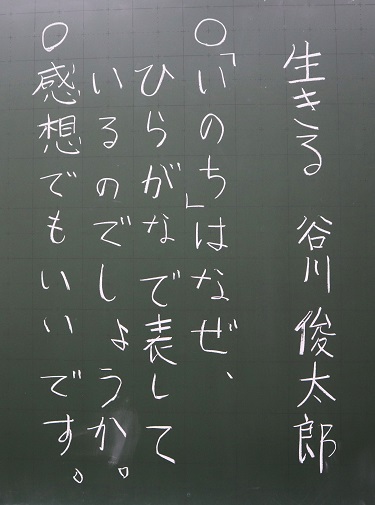 生きる 谷川俊太郎
○「いのち」はなぜ、
ひらがなで表して
いるのでしょうか。
○感想でもいいです。